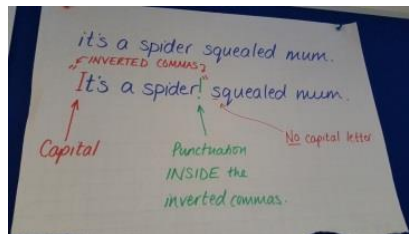 it's a spider squealed mum.
" INVERTED COMMAS "
It's a spider! squealed mum.
Capital
Punctuation
INSIDE the
inverted commas.
No capital letter